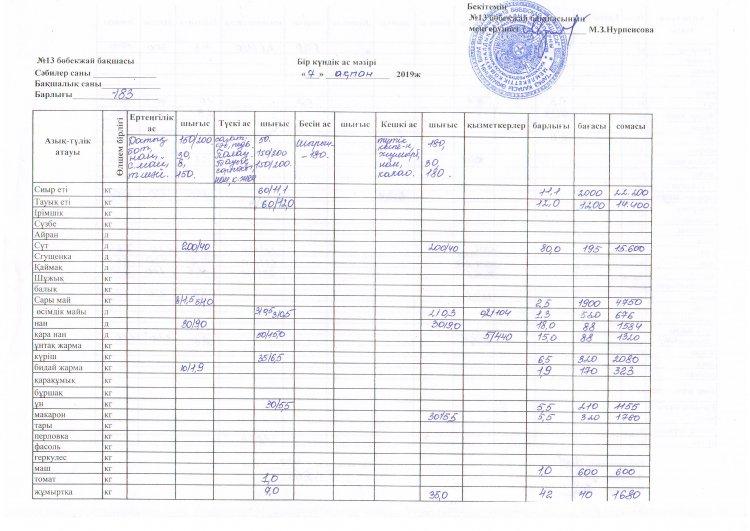 Бекітемін
№13 бөбекжай бақшасының
меңгерушісі М.З.Нурпеисова
№13 бөбекжай бақшасы
Сәбилер саны
Бақшалық саны
Барлығы 183
Бір күндік ас мәзірі
«7» ақпан 2019ж
Азық-түлік атауы Өлшем бірлігі Ертеңгілік ас шығыс Түскі ас шығыс Бесін ас шығыс Кешкі ас шығыс қызметкерлер барлығы бағасы сомасы
150/200 50. 180,
нан, 20, 150/200 нан, 30,
8, 150/200. 180.
150. - 180.
Сиыр еті кг 60/11,1 11,1 2000 22.200
Тауық еті кг 60/12,0 12,0 1200 14.400
Ірімшік кг
Сүзбе кг
Айран л
Сүт л 200/40 200/40 80,0 195 15.600
Сгущенка д
Қаймақ л
Шұжық кг
балық кг
Сары май кг 2,5 1900 4750
өсімдік майы л 2/0,3 1,3 520 676
нан д 30/90 30/90 18,0 88 1584
қара нан д 15,0 88 1320
ұнтақ жарма кг
күріш кг 35/6,5 6,5 320 2080
бидай жарма кг 10/1,9 1,9 170 323
қарақұмық кг
бұршақ кг
ұн кг 30/5,5 5,5 210 1155
макарон кг 30/5,5 5,5 320 1760
тары кг
перловка кг
фасоль кг
геркулес кг
маш кг 1,0 600 600
томат кг 1,0
жұмыртка кг 7,0 35,0 42 40 1680